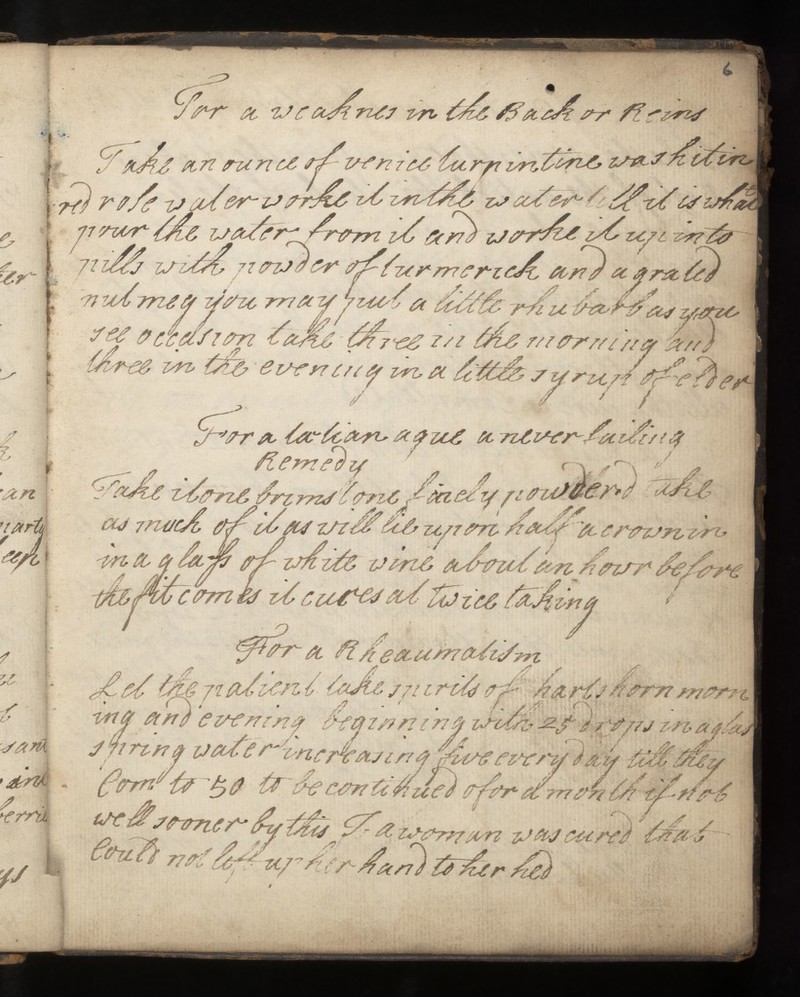 6
For a weaknes in the Back or Reins
Take an ounce of venice turpintine washit in
red rose water worke it in the water till it is whate
pour the water from it and worke it up into
pills with powder of turmerick and a grated
nutmeg you may put a little rhubarb as you
see occasion take three in the morning and
three in the evening in a little syrup of elder
For a tatian ague a never failing
Remedy
Take itone brimstone finely powderd take
as much of it as will lie upon half a crown in
in a glass of white wine about an howr before
the fit comes it cures at twice taking
For a Rheaumatism
Let the patient take spirits of harts horn morn
ing and evening beginning with 25 drops in a glas
spring water increasing five every day till they
Com to 50 to be continued ofor a month if not
well sooner by this a woman was cured that
Could not left up her hand to her hed